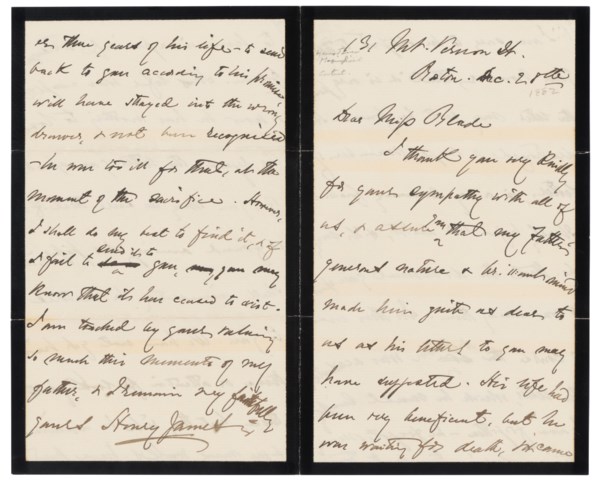 131 Mt. Vernon St.
Boston. Dec. 28th
1882
Dear Miss Blade
I thank you very kindly
for your sympathy with all of
us, & assure you that my father's
generous nature & his mind
made him quite as dear to
us as his letters to you may
have suggested. His life had
been very beneficent, but he
was waiting for death, & it came
or three years of his life - to send
back to you according to his promise
will have strayed into the wrong
drawer, & not been recognized
- he was too ill for that, at the
moment of the sacrifice. However,
I shall do my best to find it, & if
I fail to send it to you, you may
know that it has ceased to exist.
I am touched by your valuing
so much this memento of my
father, & I remain very faithfully
yours Henry James